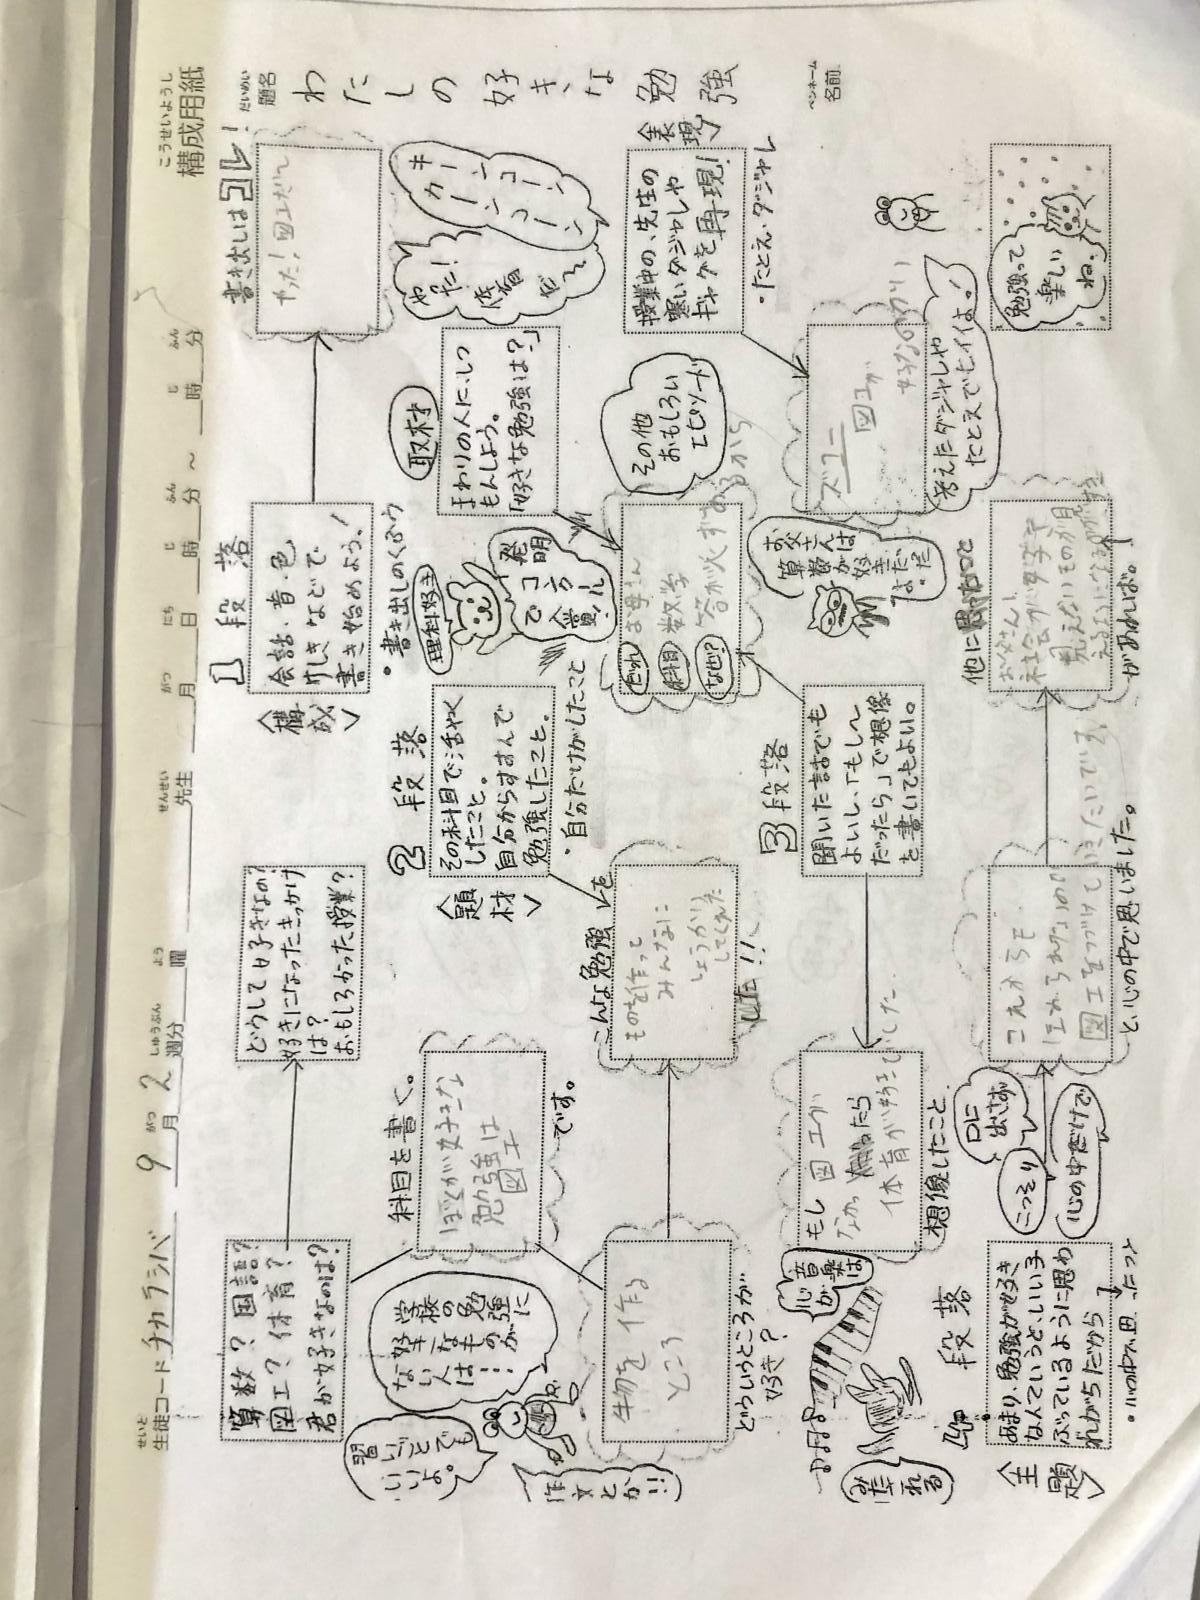 こうせいようし
構成用紙
だいめい
題名
わたしの好きな勉強
ペンネーム
名前
せいと
生徒コード チカラシバ
9月2週分
がつ しゅうぶん
よう
曜
せんせい
先生
がつ にち じ ふん じ ふん
月 日 時 分 ～ 時 分
書き出しはコレ!
やった!図工だぜ
キーンコーン
カーンコーン
やった!
体育
だ～
1段落
〈構成〉
会話・音・色
けしきなどで
書き始めよう!
・書き出しのくふう
どうして好きなの?
好きになったきっかけ
は?
おもしろかった授業?
算数?国語?
図工?体育?
君が好きなのは?
取材
まわりの人に、しつ
もんしよう。
「好きな勉強は?」
理科好き
発明
コンクール
で
金賞!
2段落
〈題材〉
その科目で活やく
したこと。
自分からすすんで
勉強したこと。
・自分だけがしたこと
科目を書く。
ぼくが好きな
勉強は
図工
です。
学校の勉強に
好きなものが
ない人は…
習いごとでも
いいよ。
作文とか!!
〈表現〉
授業中の、先生の
寒いダジャレや
ギャグを再現!
・たとえ・ダジャレ
その他
おもしろい
エピソード
だれ
お母さん
科目
数学
なぜ?
答えが必ずあるから
こんな勉強を
ものを作って
みんなに
しょうかい
してくれた
した!!
生物を作る
ところ
どういうところが
好き?
図工が
好きなのかい
考えたダジャレや
たとえでもイイよ!
お父さんは
算数が好きだったよ。
3段落
聞いた話でも
よいし、「もし～
だったら」で想像
を書いてもよい。
もし図工が
なかったら
体育が好きでした
想像したこと
音楽は
心が
みだれる
勉強って
楽しい
ね。
他に
お父さん!
社会が好きで
見えないものが見
えるようになる
があれば。
これからも
図工をつづけていきたいです
と、心の中で思いました。
口に
出さず
こっそり
心の中だけで
4段落
〈主題〉
あまり、勉強が好き
なんていうと、いい子
ぶっているように思わ
れがちだから